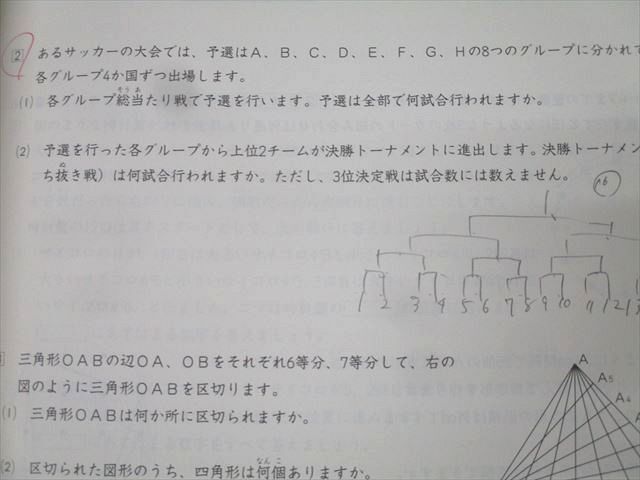 2 あるサッカーの大会では、予選はA、B、C、D、E、F、G、Hの8つのグループに分かれて
各グループ4か国ずつ出場します。
(1) 各グループ総当たり戦で予選を行います。予選は全部で何試合行われますか。
そうあ
(2) 予選を行った各グループから上位2チームが決勝トーナメントに進出します。決勝トーナメン
ち抜き戦）は何試合行われますか。ただし、3位決定戦は試合数には数えません。
ぬ
16
1 2 3 4 5 6 7 8 9 10 11 12 13
三角形OABの辺OA、OBをそれぞれ6等分、7等分して、右の
図のように三角形OABを区切ります。
A
A5
A4
(1) 三角形OABは何か所に区切られますか。
(2) 区切られた図形のうち、四角形は何個ありますか。
なんこ